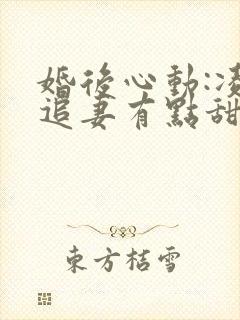 婚後心動:
追妻有點甜
東方桔雪